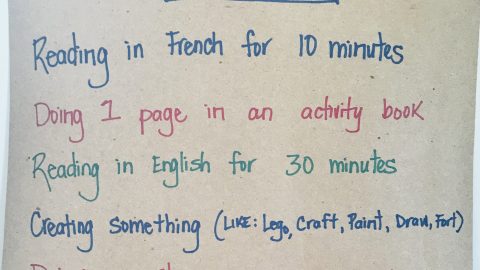 Reading in French for 10 minutes
Doing 1 page in an activity book
Reading in English for 30 minutes
Creating something (LIKE: Lego, Craft, Paint, Draw, Fort)